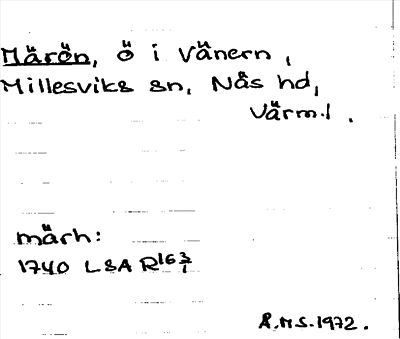 Märön, ö i Vänern,
Millesviks sn, Näs hd,
Värml.
märh:
1740 LSA R16 3/1
Å.M.S. 1972.